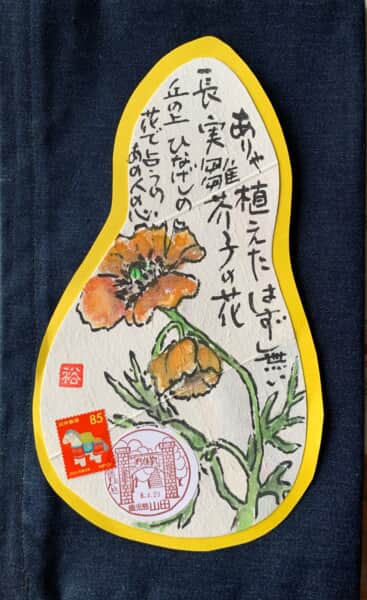 ありゃ植えたはず無い
長実雛芥子の花
丘の上 ひなげしの
花で占うの
あの人の心
裕
85
日本郵便
8.4.23
鹿児島山田